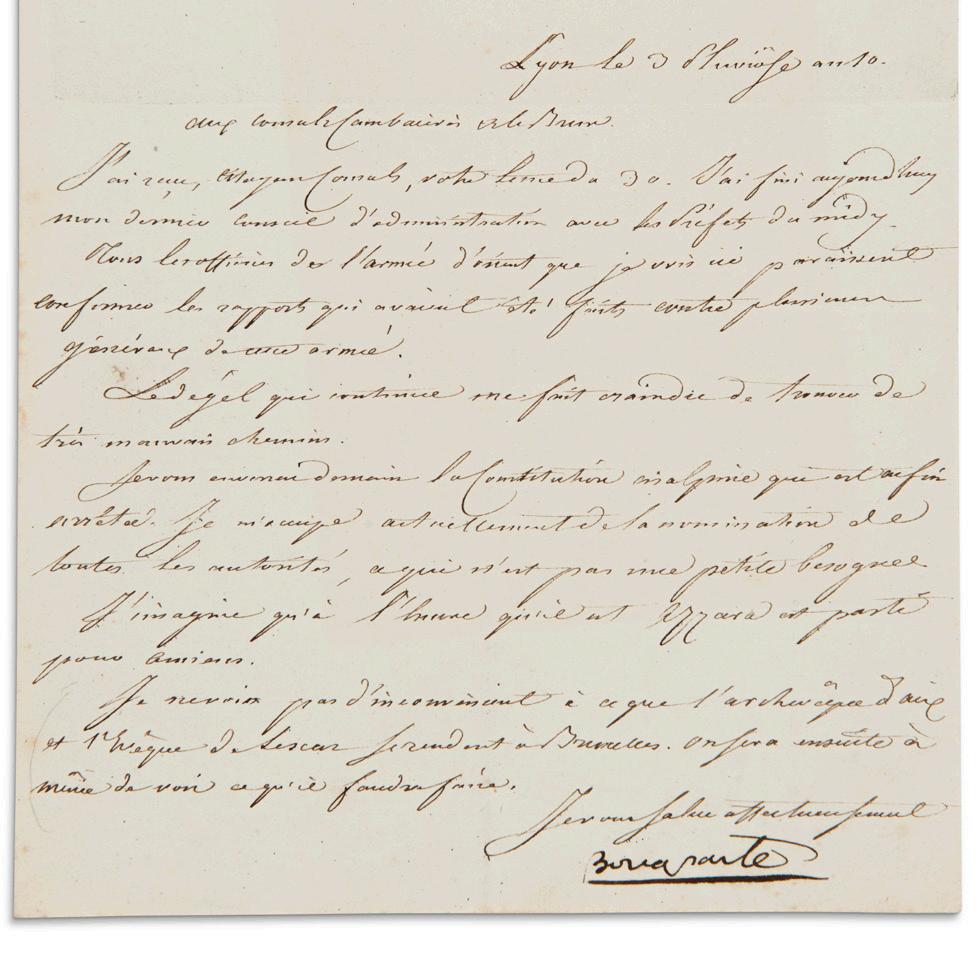 Lyon le 3 Pluviôse an 10.
aux consuls Cambacérès et le Brun.
J'ai reçu, Citoyens Consuls, votre lettre du 30. J'ai fini aujourd'huy
mon dernier conseil d'administration avec les Préfets du midy.
Tous les officiers de l'armée d'orient que je vois ici paraissent
confirmer les rapports qui avaient été faits contre plusieurs
généraux de cette armée.
Le dégel qui continue me fait craindre de trouver de
très mauvais chemins.
Je vous enverrai demain la Constitution cisalpine qui est enfin
arrêtée. Je m'occupe actuellement de la nomination de
toutes les autorités, ce qui n'est pas une petite besogne
J'imagine qu'à l'heure qu'il est Azzara est parti
pour amiens.
Je ne vois pas d'inconvénient à ce que l'archevêque d'aix
et l'Evêque de Lescar se rendent à Bruxelles. on sera ensuite à
même de voir ce qu'il faudra faire.
Je vous salue affectueusement
Bonaparte